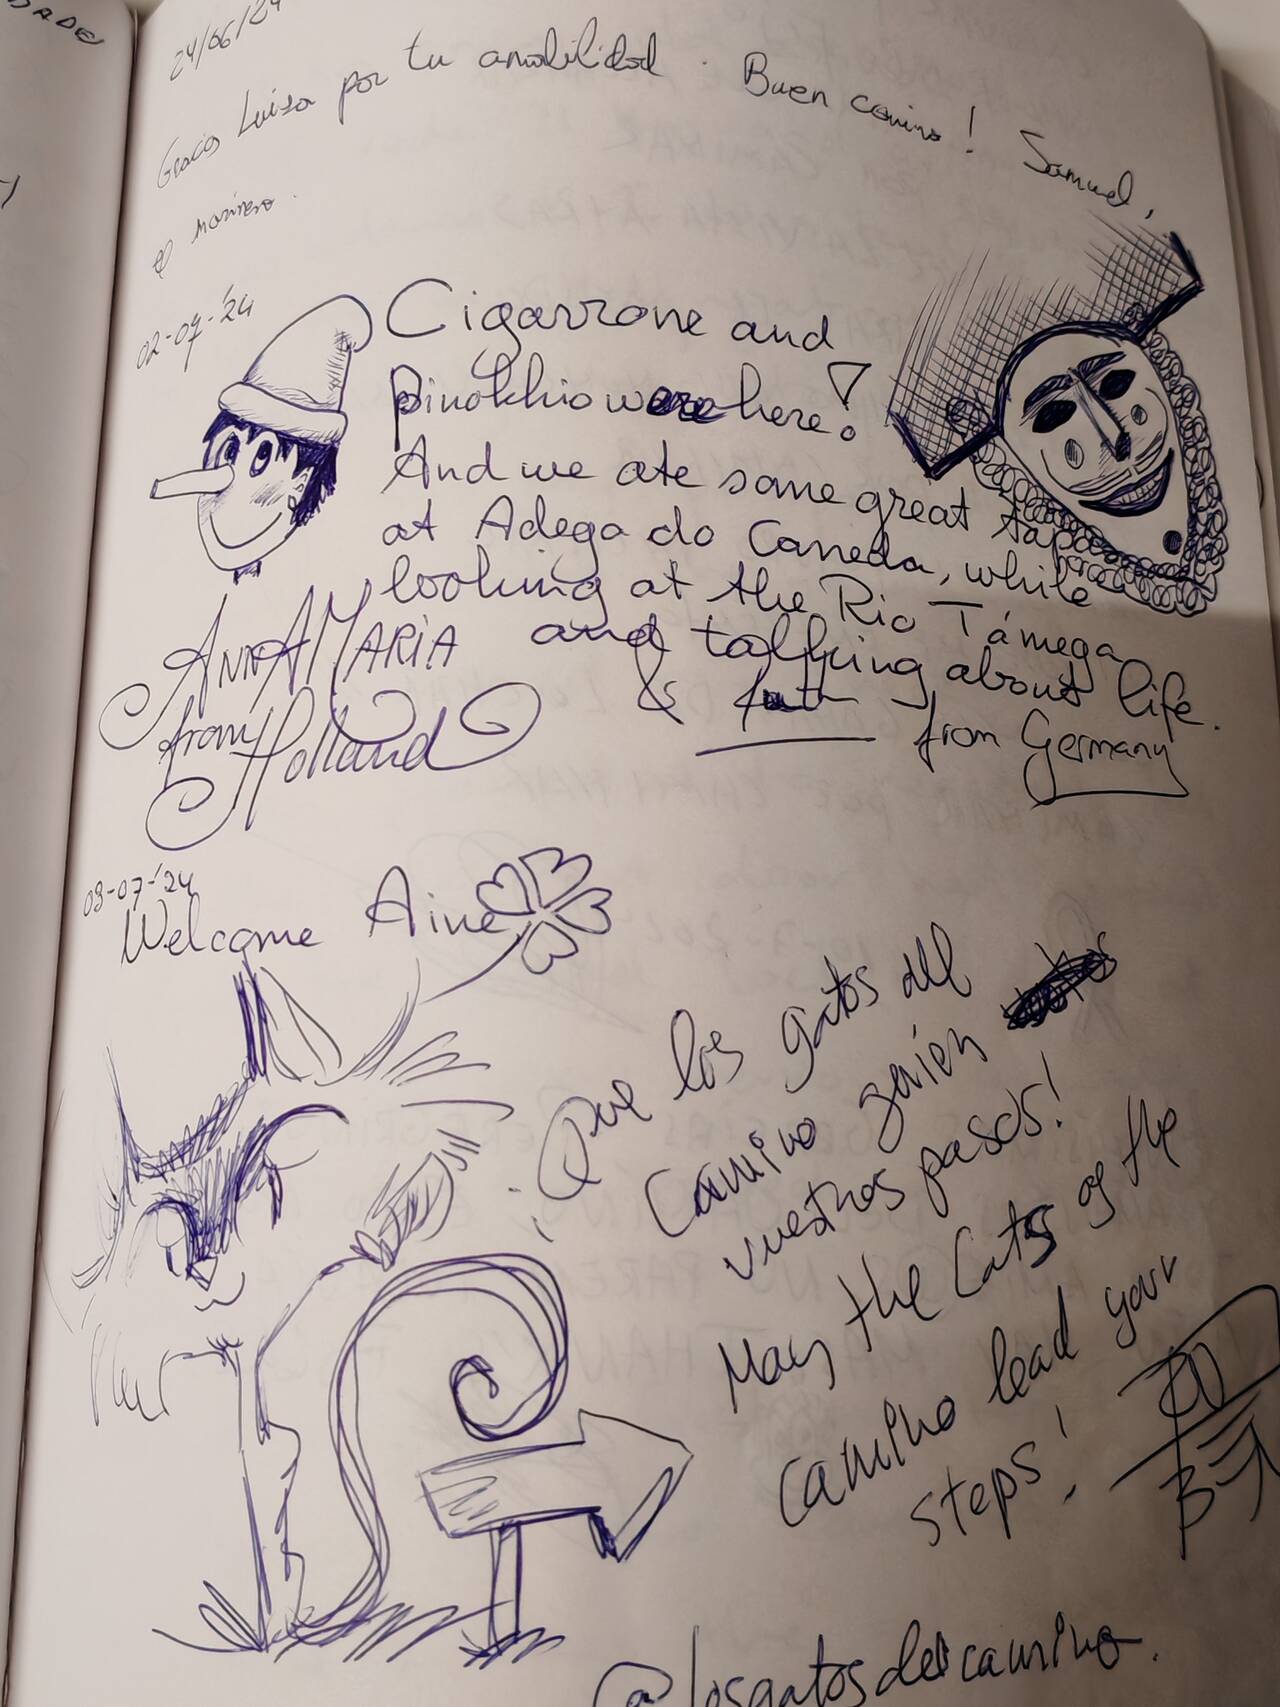 DADE
24/06/24
Gracias Luisa por tu amabilidad. Buen camino! Samuel,
el marinero.
02-07-'24
Cigarrone and
Pinokkio were here!
And we ate some great tapas
at Adega do Caneda, while
looking at the Rio Támega
and talking about life.
ANNAMARIA
from Holland
&
from Germany
03-07-'24
Welcome Aine
¡Que los gatos del
Camino guíen
vuestros pasos!
May the Cats of the
camino lead your
steps!
@losgatosdelcamino.